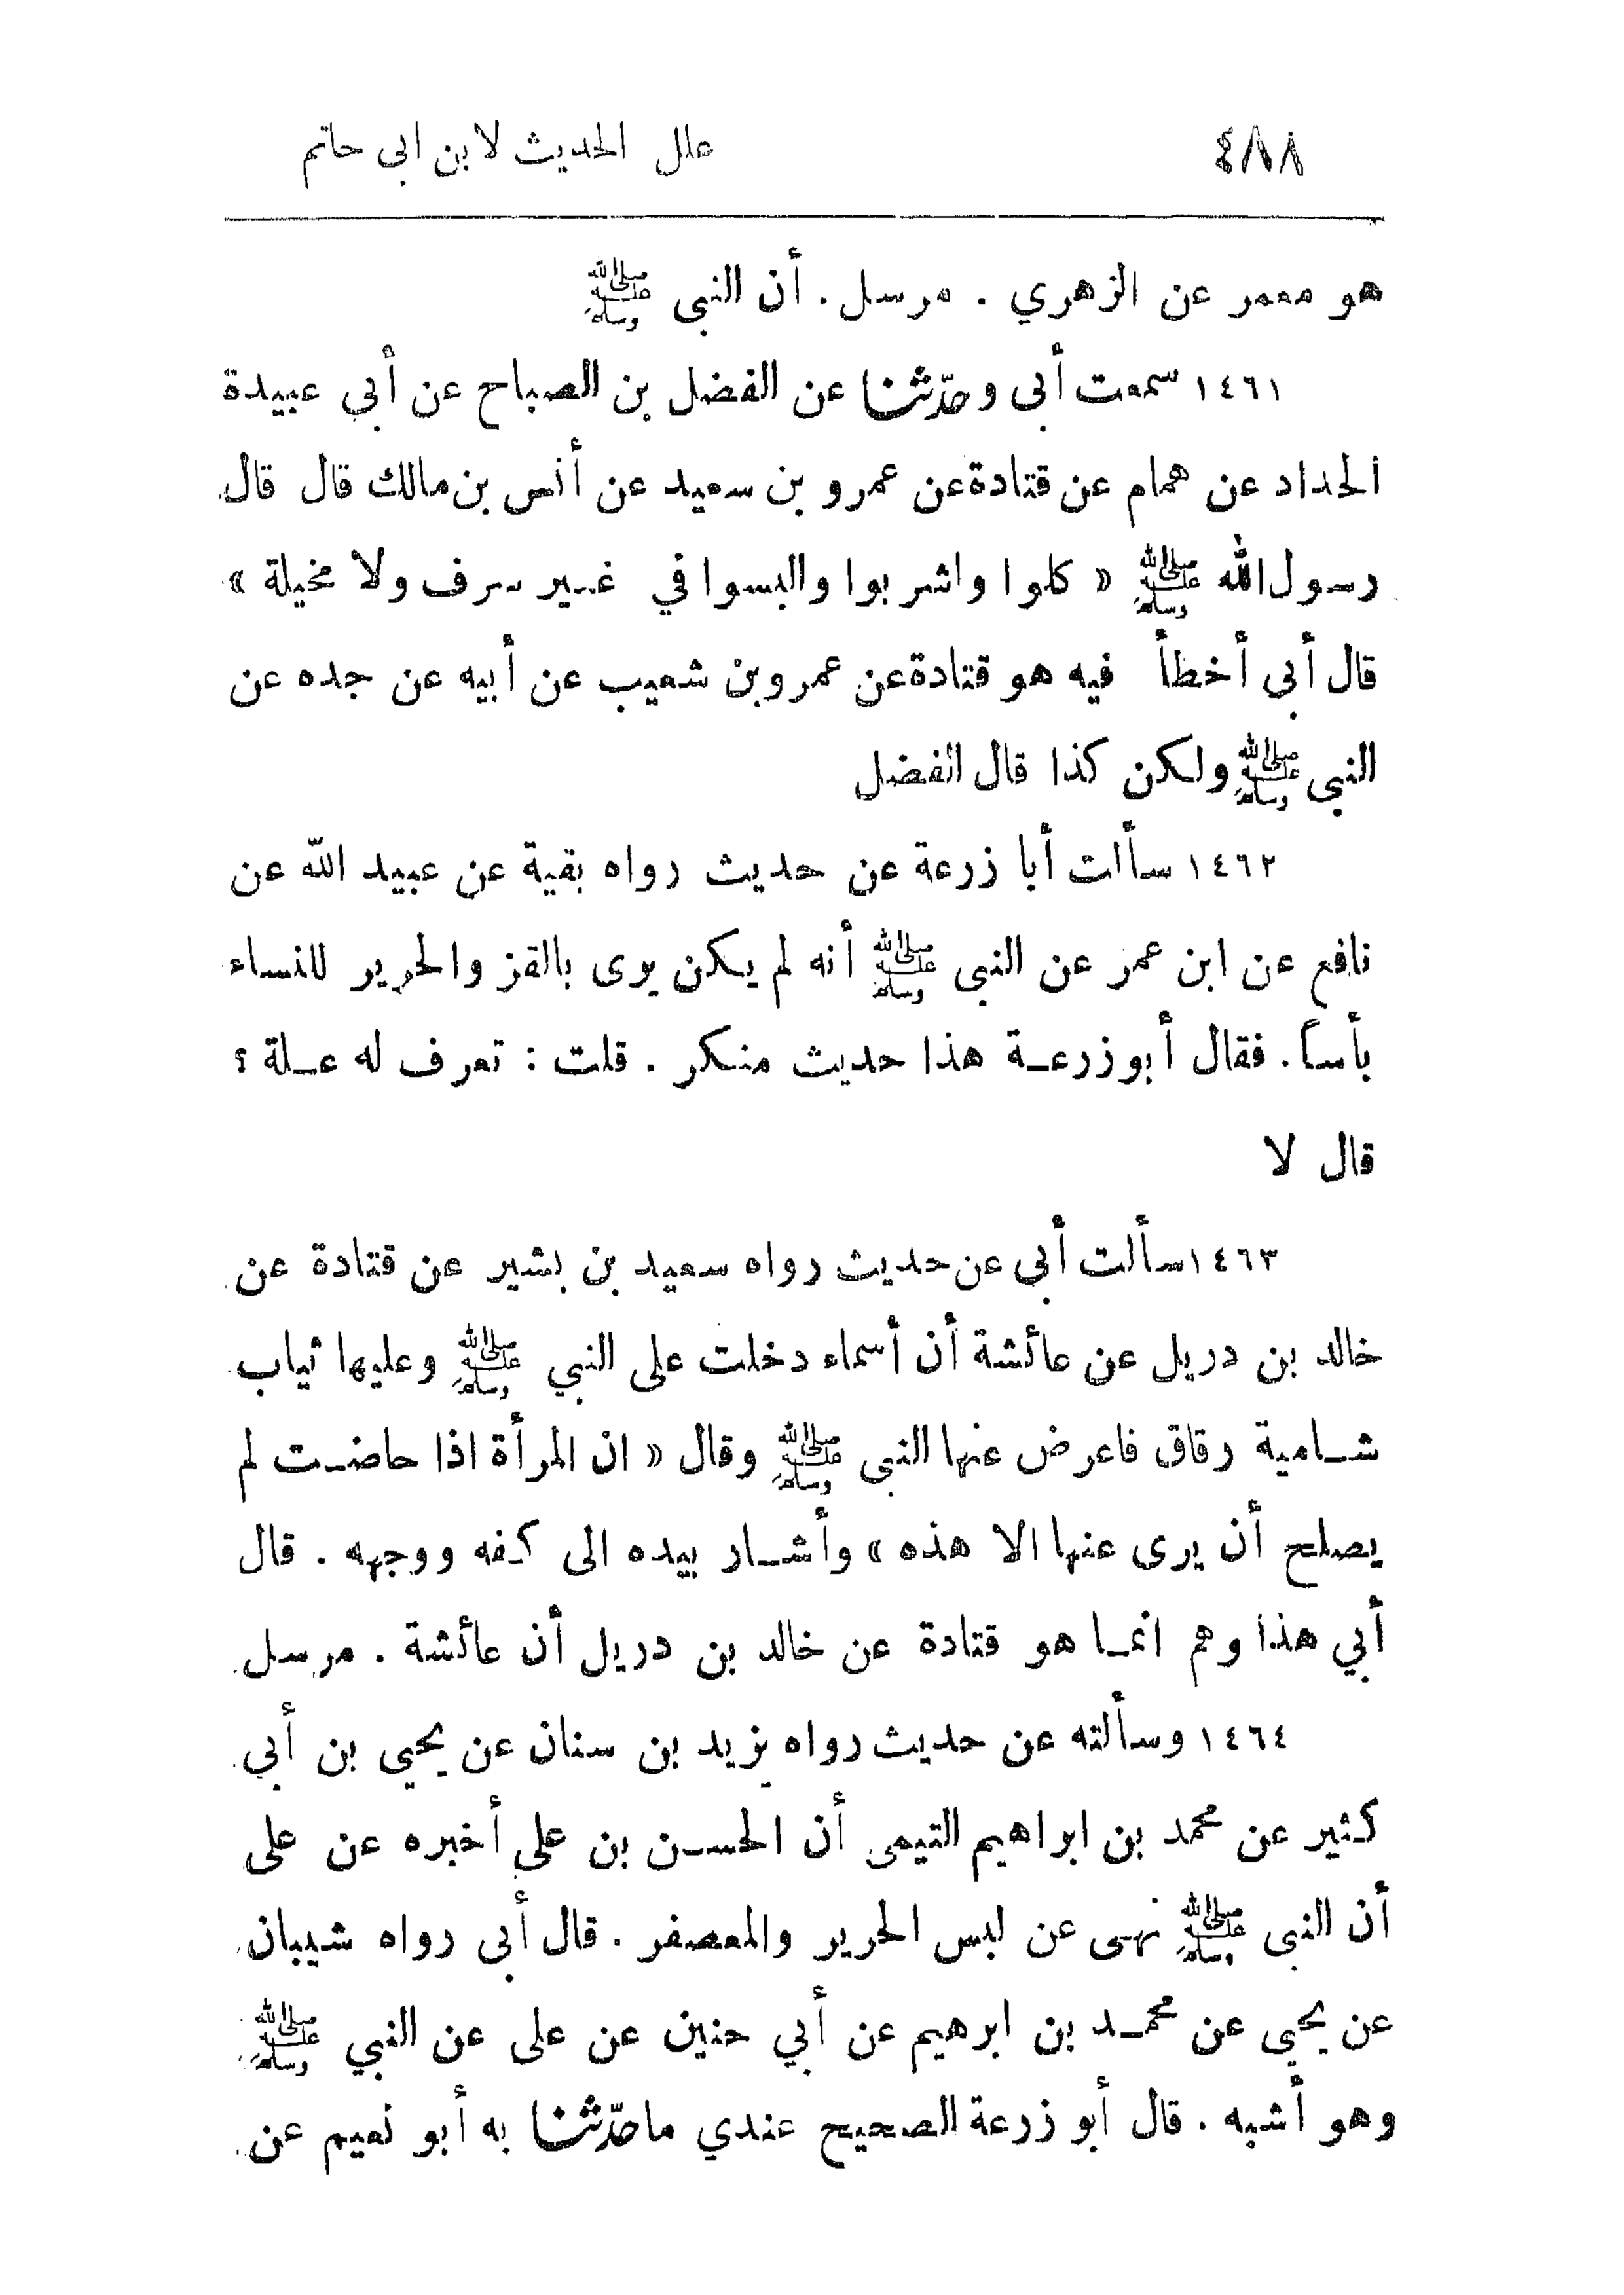 ٤٨٨ علل الحديث لابن ابى حاتم
هو معمر عن الزهري . مرسل . أن النبى ﷺ
١٤٦١ سمعت أبى وحدّثنا عن الفضل بن الصباح عن أبي عبيدة
الحداد عن همام عن قتادة عن عمرو بن سعيد عن أنس بن مالك قال قال
رسول الله ﷺ « كلوا واشربوا والبسوا في غير سرف ولا مخيلة »
قال أبى أخطأ فيه هو قتادة عن عمرو بن شعيب عن أبيه عن جده عن
النبى ﷺ ولكن كذا قال الفضل
١٤٦٢ سألت أبا زرعة عن حديث رواه بقية عن عبيد الله عن
نافع عن ابن عمر عن النبى ﷺ أنه لم يكن يرى بالقز والحرير للنساء
بأساً . فقال أبو زرعة هذا حديث منكر . قلت : تعرف له علة ؟
قال لا
١٤٦٣ سألت أبي عن حديث رواه سعيد بن بشير عن قتادة عن
خالد بن دريل عن عائشة أن أسماء دخلت على النبي ﷺ وعليها ثياب
شامية رقاق فاعرض عنها النبى ﷺ وقال « ان المرأة اذا حاضت لم
يصلح أن يرى عنها الا هذه » وأشار بيده الى كفه ووجهه . قال
أبي هذا وهم انما هو قتادة عن خالد بن دريل أن عائشة . مرسل
١٤٦٤ وسألته عن حديث رواه يزيد بن سنان عن يحيى بن أبي
كثير عن محمد بن ابراهيم التيمى أن الحسن بن على أخبره عن على
أن النبى ﷺ نهى عن لبس الحرير والمعصفر . قال أبى رواه شيبان
عن يحيى عن محمد بن ابرهيم عن أبي حنين عن على عن النبي ﷺ
وهو أشبه . قال أبو زرعة الصحيح عندي ماحدّثنا به أبو نعيم عن